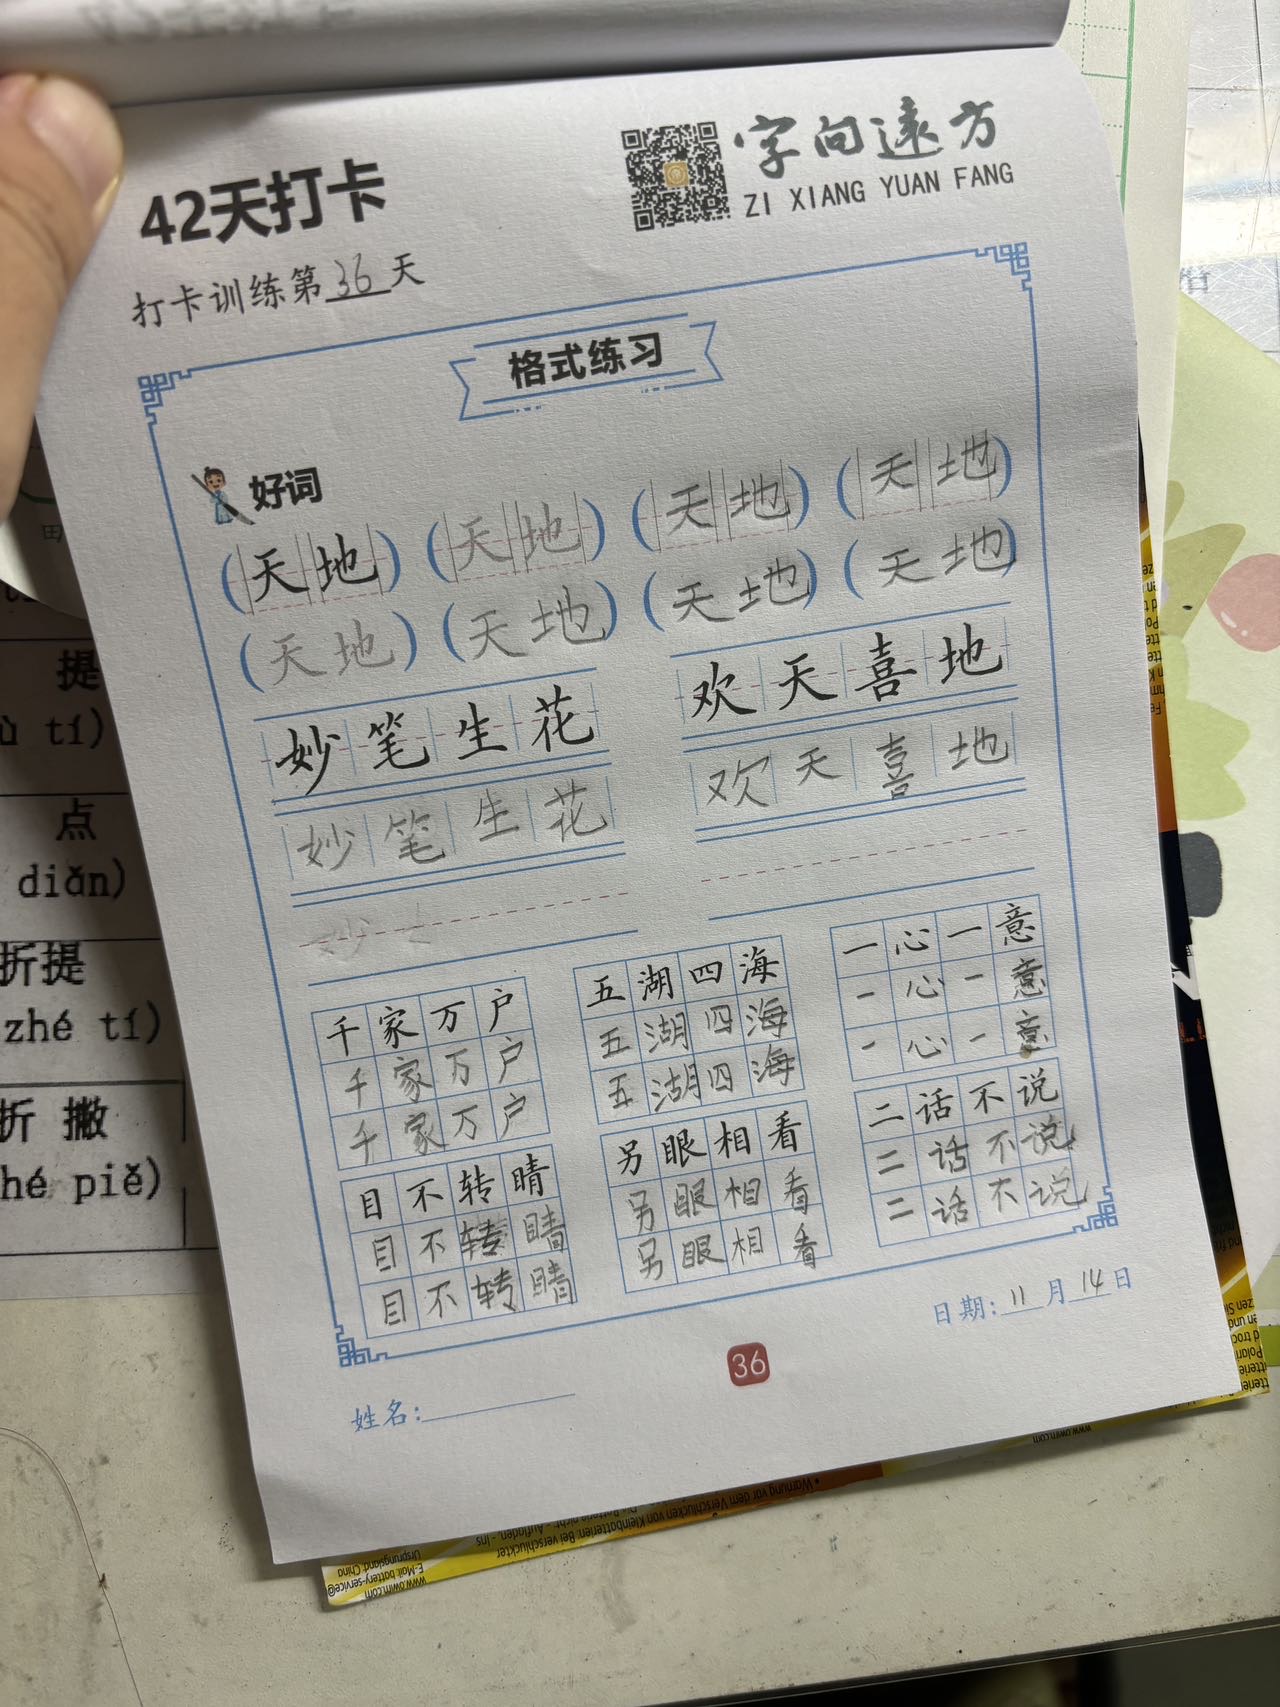 字向远方
ZI XIANG YUAN FANG
42天打卡
打卡训练第36天
格式练习
好词
(天地) (天地) (天地) (天地)
(天地) (天地) (天地) (天地)
妙笔生花 欢天喜地
妙笔生花 欢天喜地
千家万户 五湖四海 一心一意
千家万户 五湖四海 一心一意
千家万户 五湖四海 一心一意
目不转睛 另眼相看 二话不说
目不转睛 另眼相看 二话不说
目不转睛 另眼相看 二话不说
日期:11月14日
36
姓名:
提
tí)
点
diǎn)
折提
zhé tí)
折撇
hé piě)
www.owim.com
E-Mail: battery-service@
Ursprungsland: China